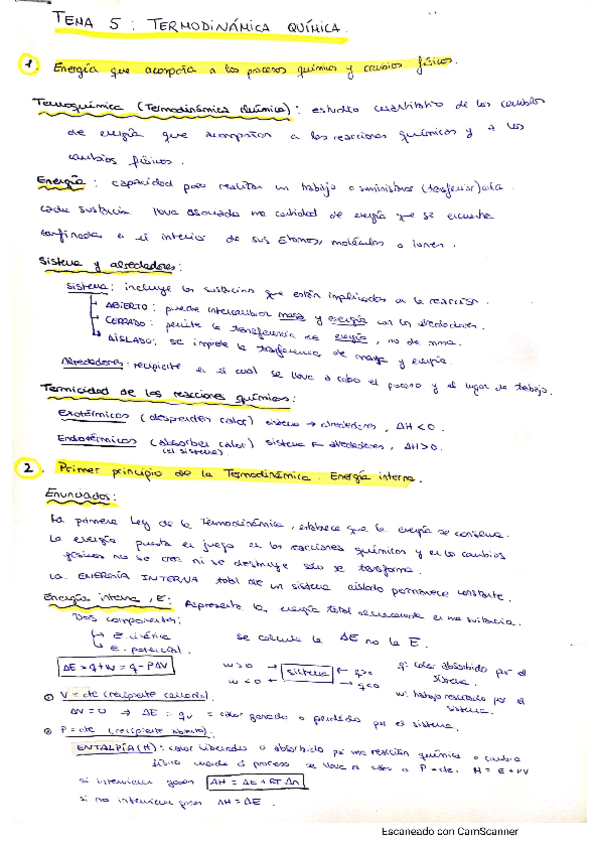 TEMA 5 : TERMODINÁMICA QUÍMICA.
1. Energía que acompaña a los procesos químicos y cambios físicos.
Termoquímica (Termodinámica Química) : estudio cuantitativo de los cambios
de energía que acompañan a las reacciones químicas y a los
cambios físicos.
Energía : capacidad para realizar un trabajo o suministrar (transferir) calor.
Cada sustancia lleva asociada una cantidad de energía que se encuentra
confinada en el interior de sus átomos, moléculas o iones.
Sistema y alrededores :
Sistema : incluye las sustancias que están implicadas en la reacción.
ABIERTO : puede intercambiar masa y energía con los alrededores.
CERRADO : permite la transferencia de energía, no de masa.
AISLADO : se impide la transferencia de masa y energía.
Alrededores : recipiente en el cual se lleva a cabo el proceso y el lugar de trabajo.
Termicidad de las reacciones químicas :
Exotérmicas (desprenden calor) sistema → alrededores, ΔH < 0.
Endotérmicas (absorben calor) sistema ← alrededores, ΔH > 0.
(el sistema)
2. Primer principio de la Termodinámica. Energía interna.
Enunciados :
La primera Ley de la Termodinámica, establece que la energía se conserva.
La energía puesta en juego en las reacciones químicas y en los cambios
físicos no se crea ni se destruye solo se transforma.
La ENERGÍA INTERNA total de un sistema aislado permanece constante.
Energía interna, E : Representa la energía total almacenada en una sustancia.
Dos componentes :
E. cinética
E. potencial
se calcula la ΔE no la E.
ΔE = q + w = q - PΔV
w > 0 → sistema ← q > 0
w < 0 ← → q < 0
q: calor absorbido por el sistema.
w: trabajo realizado por el sistema.
① V = cte (recipiente cerrado).
ΔV = 0 → ΔE = qv = calor ganado o perdido por el sistema.
② P = cte (recipiente abierto).
ENTALPÍA (H) : calor liberado o absorbido por una reacción química o cambio
físico cuando el proceso se lleva a cabo a P = cte. H = E + PV
si intervienen gases ΔH = ΔE + RT Δn
si no intervienen gases ΔH = ΔE.
Escaneado con CamScanner